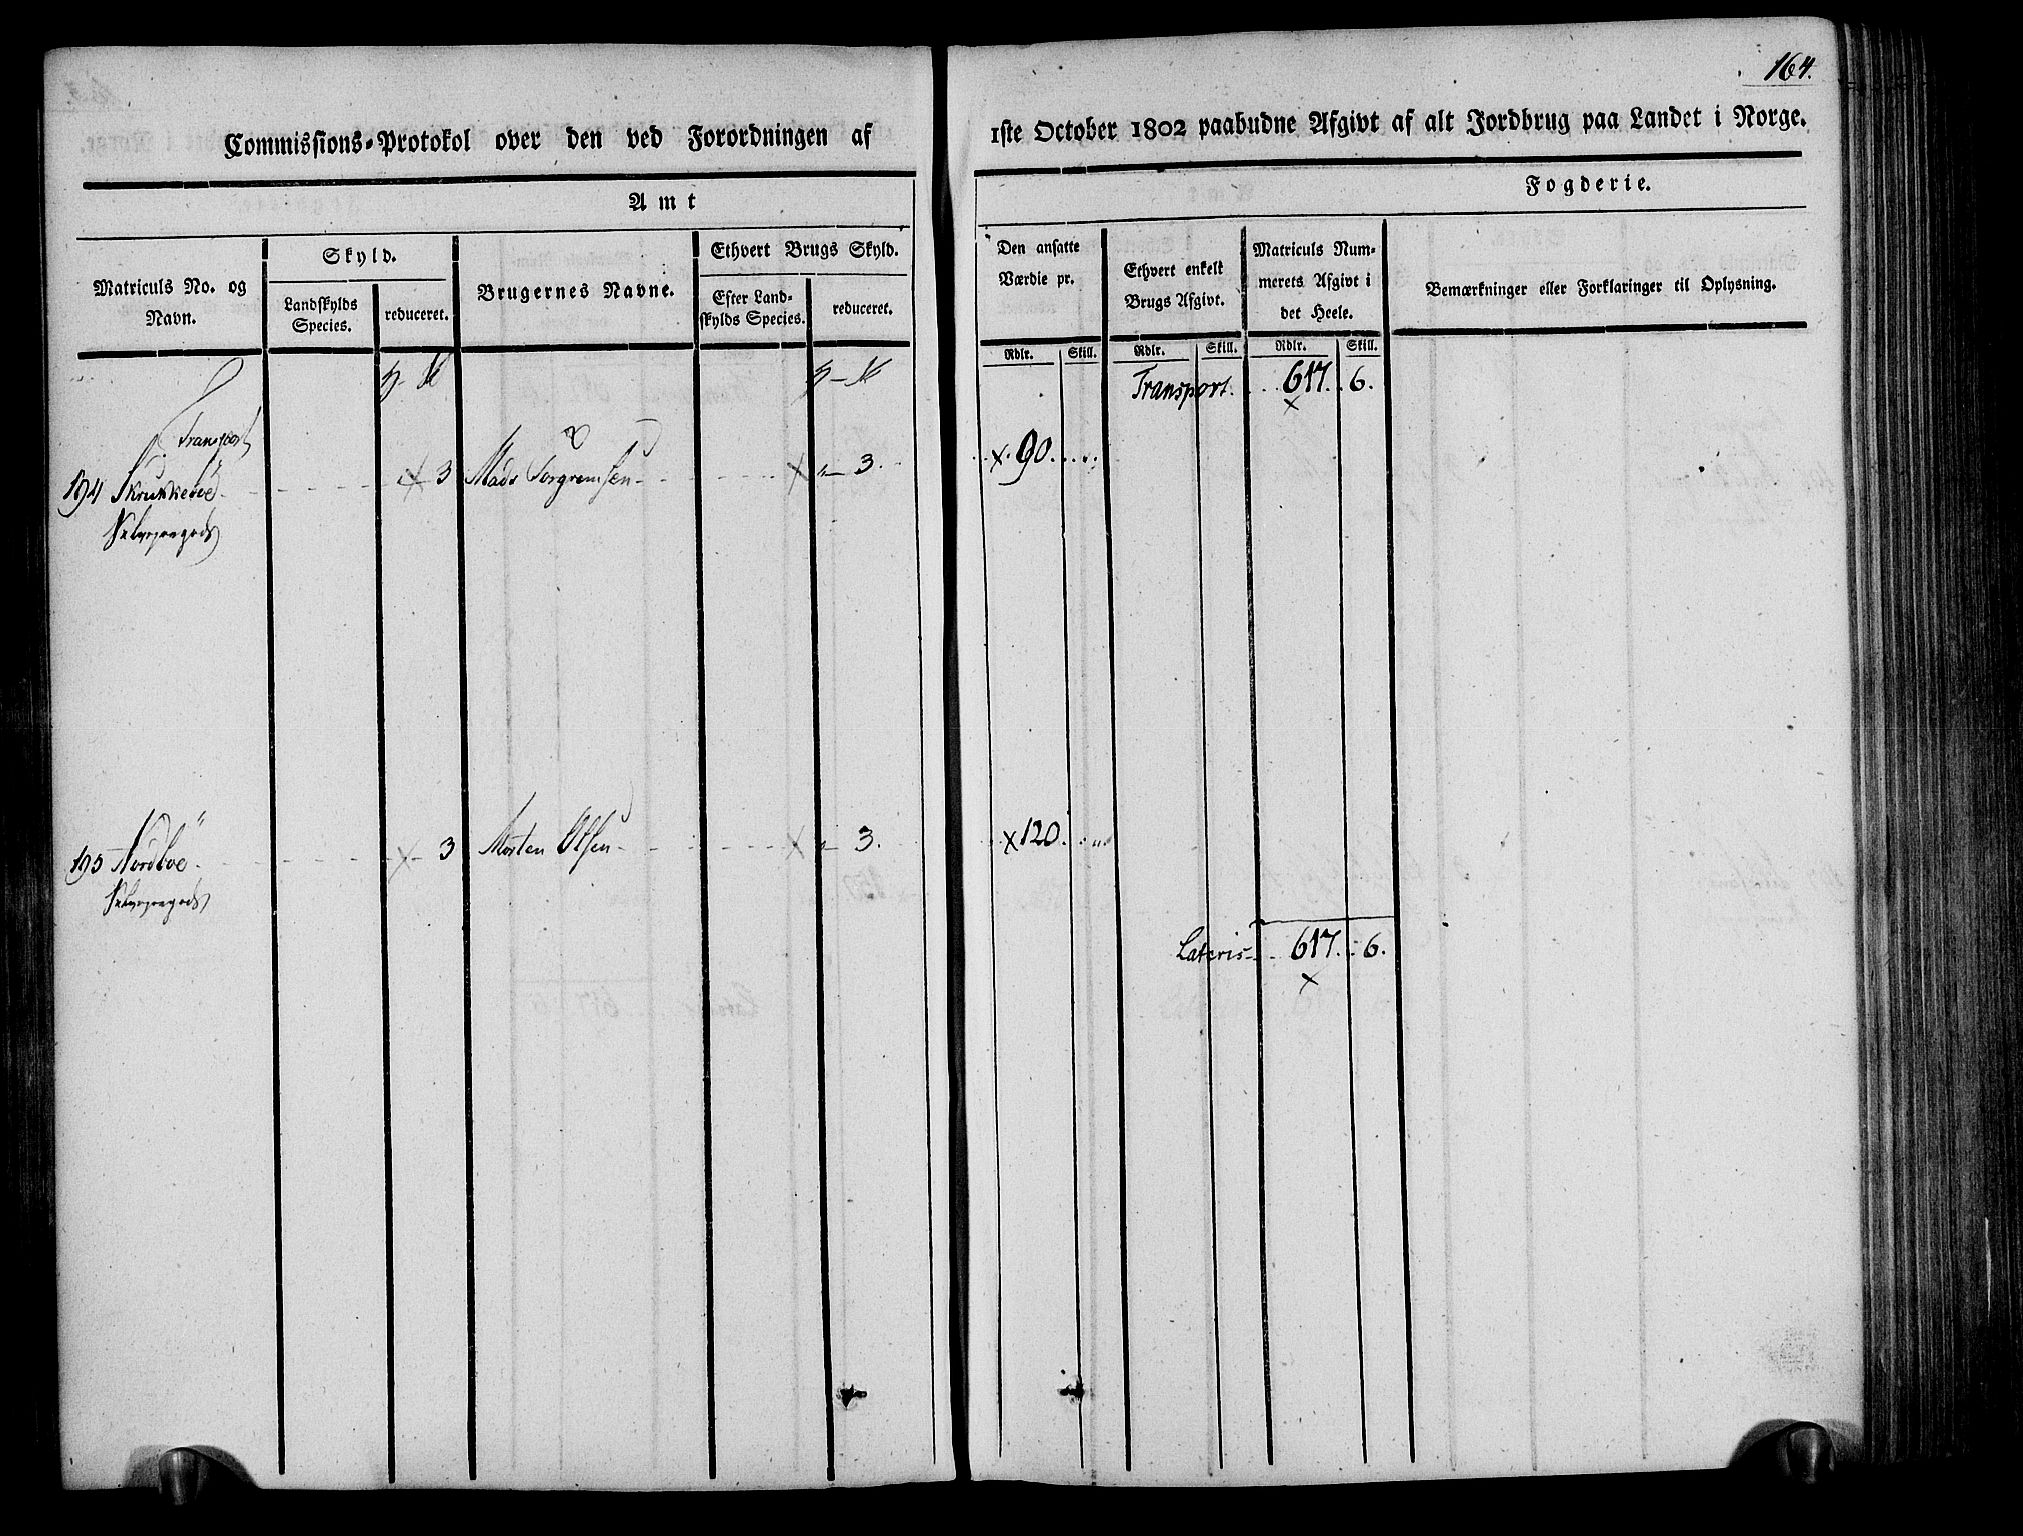 164.
Commissions-Protokol over den ved Forordningen af 1ste October 1802 paabudne Afgivt af alt Jordbrug paa Landet i Norge.
Amt
Fogderie.
Matriculs No. og Navn.
Skyld.
Landskylds Species.
reduceret.
Brugernes Navne.
Ethvert Brugs Skyld.
Efter Land-
skylds Species.
reduceret.
Den ansatte
Værdie pr.
Ethvert enkelt
Brugs Afgivt.
Matriculs Num-
merets Afgivt i
det Heele.
Bemærkninger eller Forklaringer til Oplysning.
Rdlr. Skill. Rdlr. Skill. Rdlr. Skill.
Transport. 617. 6.
Transport
194 Skrukkeröe 3 Mads Torgremsen 3. 90.
195 Nordboe 3 Morten Olsen 3. 120.
Lateris 617. 6.